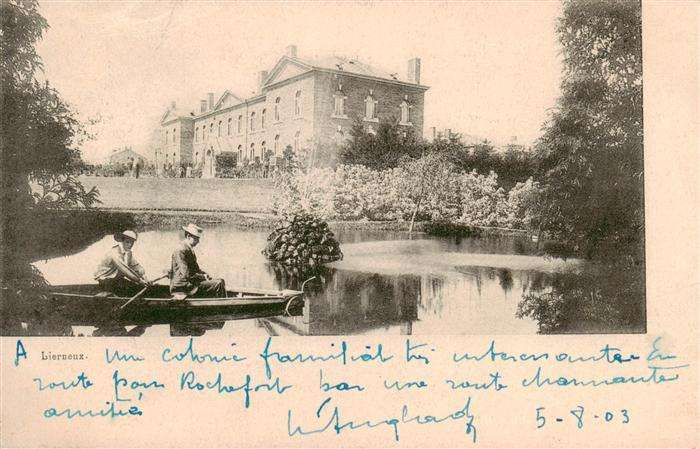 Lierneux.
A une colonie familiale très intéressante En
route pour Rochefort par une route charmante
amitiés
5-8-03